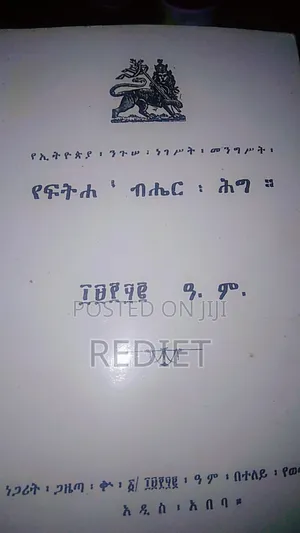 የኢትዮጵያ ፡ ንጉሠ ፡ ነገሥት ፡ መንግሥት ፡
የፍትሐ ፡ ብሔር ፡ ሕግ ።
፲፱፻፶፪ ዓ. ም.
POSTED ON JIJI
REDIET
ነጋሪት ፡ ጋዜጣ ፡ ቍ ፡ ፪/ ፲፱፻፶፪ ፡ ዓ ም ፡ በተለይ ፡
አዲስ ፡ አበባ ።